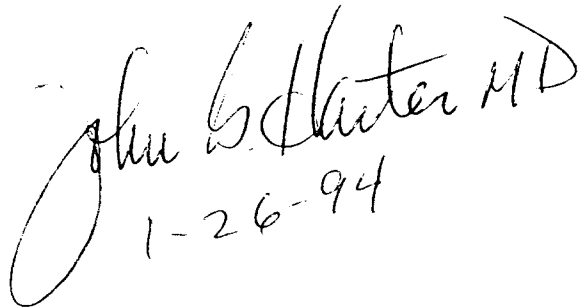 John G. Harter MD
1-26-94